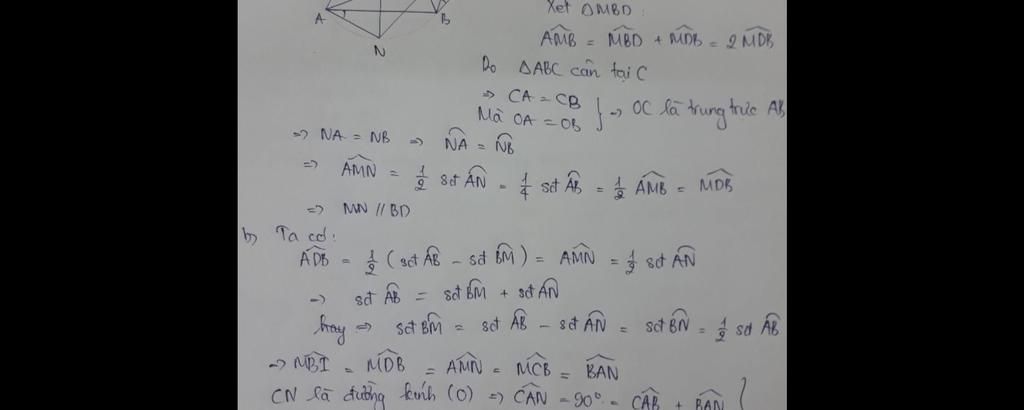 A
B
N
Xét △MBD:
\widehat{AMB} = \widehat{MBD} + \widehat{MDB} = 2\widehat{MDB}
Do △ABC cân tại C
⇒ CA = CB
Mà OA = OB } ⇒ OC là trung trực AB
⇒ NA = NB ⇒ \overset{\frown}{NA} = \overset{\frown}{NB}
⇒ \widehat{AMN} = \frac{1}{2} sđ \overset{\frown}{AN} = \frac{1}{4} sđ \overset{\frown}{AB} = \frac{1}{2} \widehat{AMB} = \widehat{MDB}
⇒ MN // BD
b) Ta có:
\widehat{ADB} = \frac{1}{2} (sđ \overset{\frown}{AB} - sđ \overset{\frown}{BM}) = \widehat{AMN} = \frac{1}{2} sđ \overset{\frown}{AN}
⇒ sđ \overset{\frown}{AB} = sđ \overset{\frown}{BM} + sđ \overset{\frown}{AN}
hay ⇒ sđ \overset{\frown}{BM} = sđ \overset{\frown}{AB} - sđ \overset{\frown}{AN} = sđ \overset{\frown}{BN} = \frac{1}{2} sđ \overset{\frown}{AB}
⇒ \widehat{MBI} = \widehat{MDB} = \widehat{AMN} = \widehat{MCB} = \widehat{BAN}
CN là đường kính (O) ⇒ \widehat{CAN} = 90° = \widehat{CAB} + \widehat{BAN} }